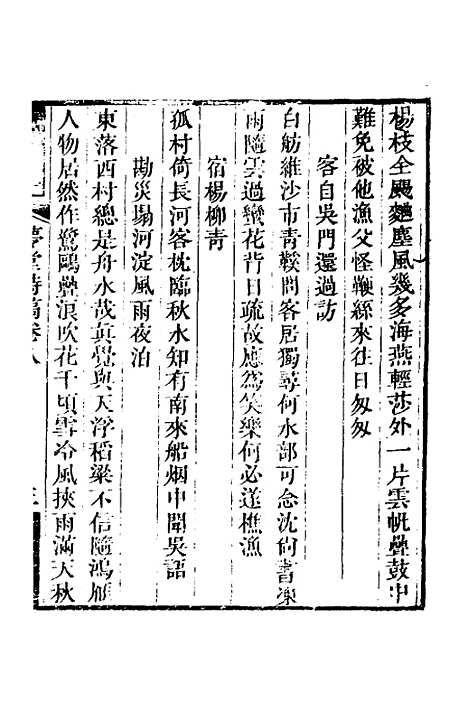 楊枝全颺麴塵風幾多海燕輕莎外一片雲帆疊鼓中
難免被他漁父怪鞭絲來往日匆匆
客自吳門還過訪
白舫維沙市青鞵問客居獨尋何水部可念沈尙書凍
雨隨雲過蠻花背日疏故應為笑樂何必逐樵漁
宿楊柳青
孤村倚長河客枕臨秋水知有南來船烟中聞吳語
勘災塌河淀風雨夜泊
東落西村總是舟水哉真覺與天浮稻粱不信隨鴻雁
人物居然作鷺鷗疊浪吹花千頃雪冷風挾雨滿天秋
夢堂詩稿卷八